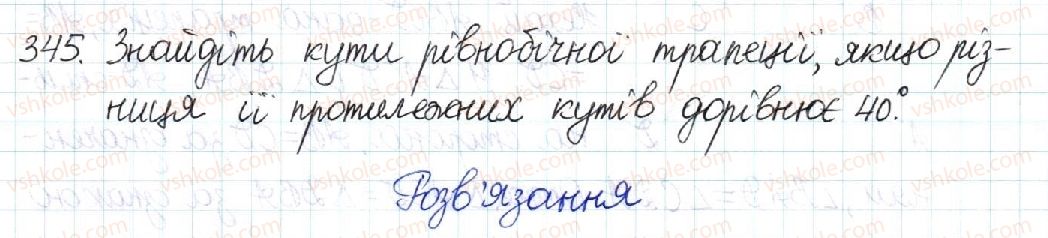 345. Знайдіть кути рівнобічної трапеції, якщо різ-
ниця її протилежних кутів дорівнює 40°.
Розв'язання